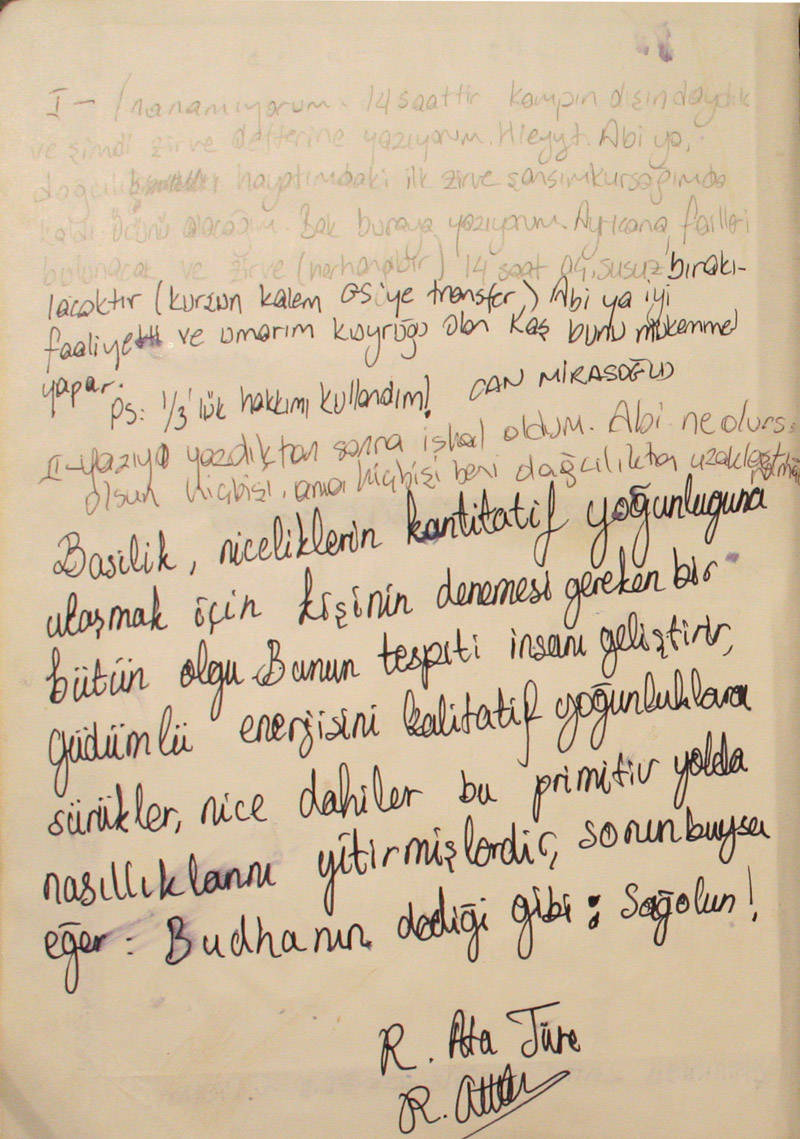 I - İnanamıyorum. 14 saattir kampın dışındaydık
ve şimdi zirve defterine yazıyorum. Hieyyt. Abi ya,
dağcılık hayatımdaki ilk zirve şansım kursağımda
kaldı öcünü alacağım. Bak buraya yazıyorum. Ayrıcana, failleri
bulunacak ve zirve (herhangibir) 14 saat aç, susuz bırakı-
lacaktır (kurşun kalem GS'ye transfer,) Abi ya iyi
faaliyetti ve umarım kuyruğu olan Kaş bunu mükemmel
yapar.
PS: 1/3'lük hakkımı kullandım! CAN MİRASOĞLU
II-yazıyı yazdıktan sonra ishal oldum. Abi ne olursa
olsun hiçbişi, ama hiçbişi beni dağcılıktan uzaklaştı
Basilik, niceliklerin kantitatif yoğunluğuna
ulaşmak için kişinin denemesi gereken bir
bütün olgu. Bunun tespiti insanı geliştirir,
güdümlü enerjisini kalitatif yoğunluklara
sürükler, nice dahiler bu primitiv yolda
nasıllıklarını yitirmişlerdir, sorun buysa
eğer: Budhanın dediği gibi: Sağolun!
R. Ata Türe